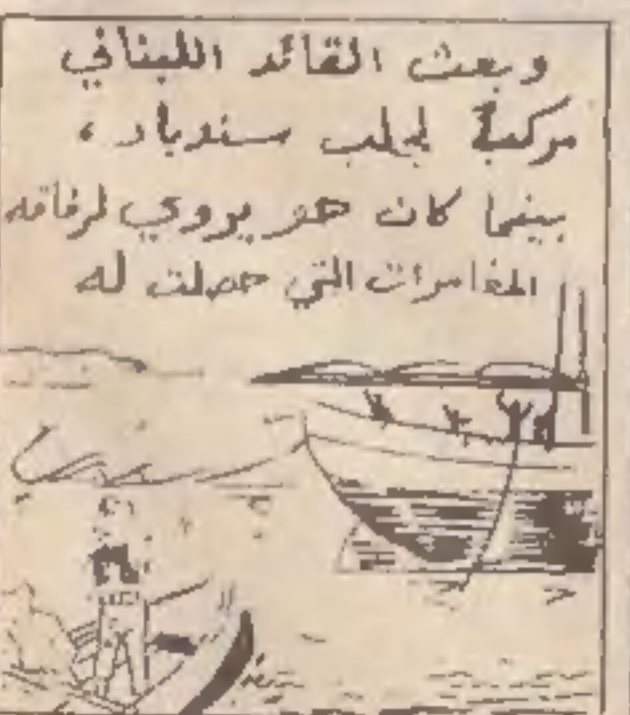 وبعث القائد اللبناني
مركبة لجلب سندباد ،
بينما كان هو يروي لرفاقه
المغامرات التي حصلت له